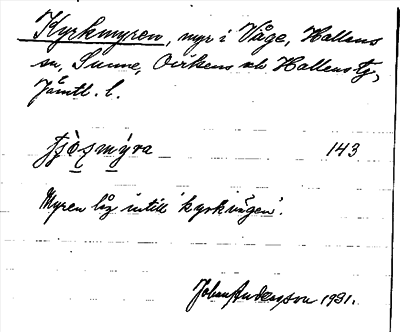 Kyrkmyren, myr i Våge, Hallens
sn, Sunne, Ovikens o. Hallens tg,
Jämtl. l.
143
Myren låg intill 'kyrkvägen'.
Johan Anderson 1931.